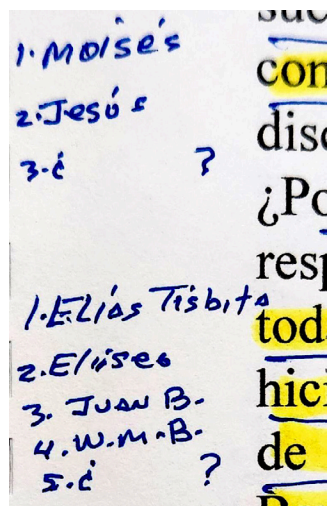 1. Moisés
2. Jesús
3. ¿ ?
1. Elías Tisbita
2. Eliseo
3. Juan B.
4. W.M.B.
5. ¿ ?
con
disc
¿Po
resp
toda
hici
de